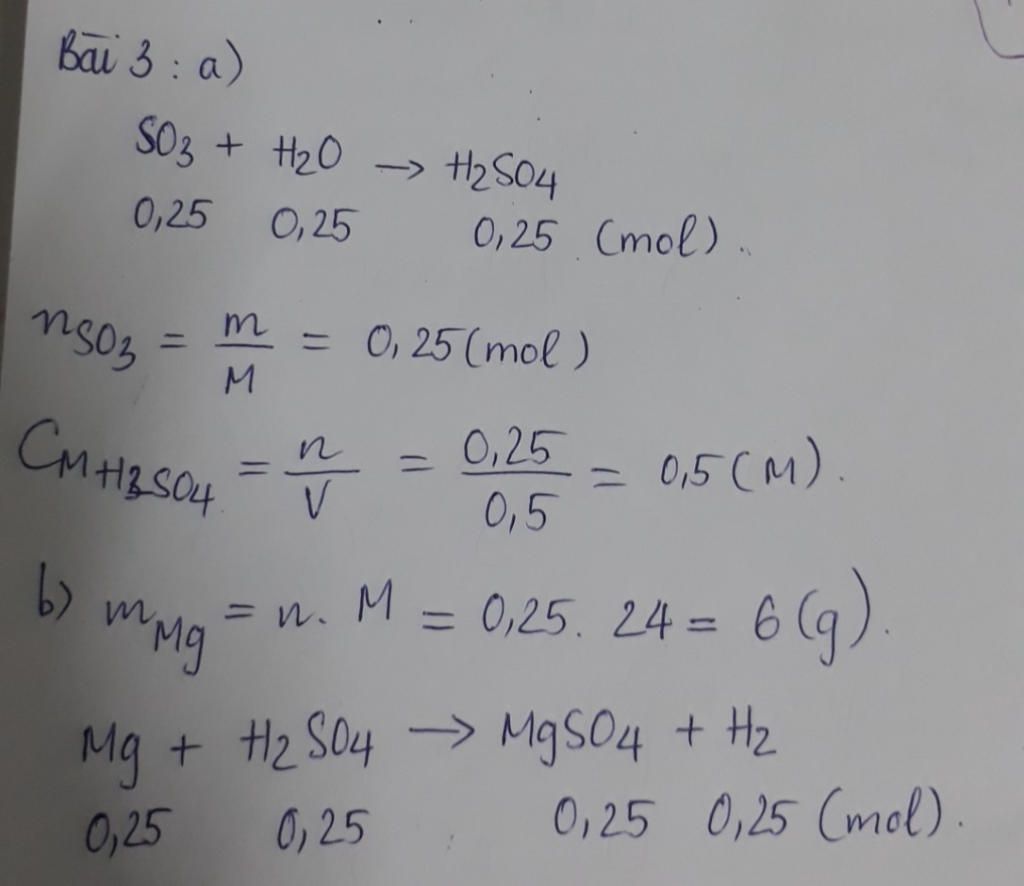 Bài 3 : a)
SO3 + H2O → H2SO4
0,25 0,25 0,25 (mol).
nSO3 = m/M = 0,25 (mol)
CM H2SO4 = n/V = 0,25/0,5 = 0,5 (M).
b) mMg = n. M = 0,25. 24 = 6 (g).
Mg + H2SO4 → MgSO4 + H2
0,25 0,25 0,25 0,25 (mol).